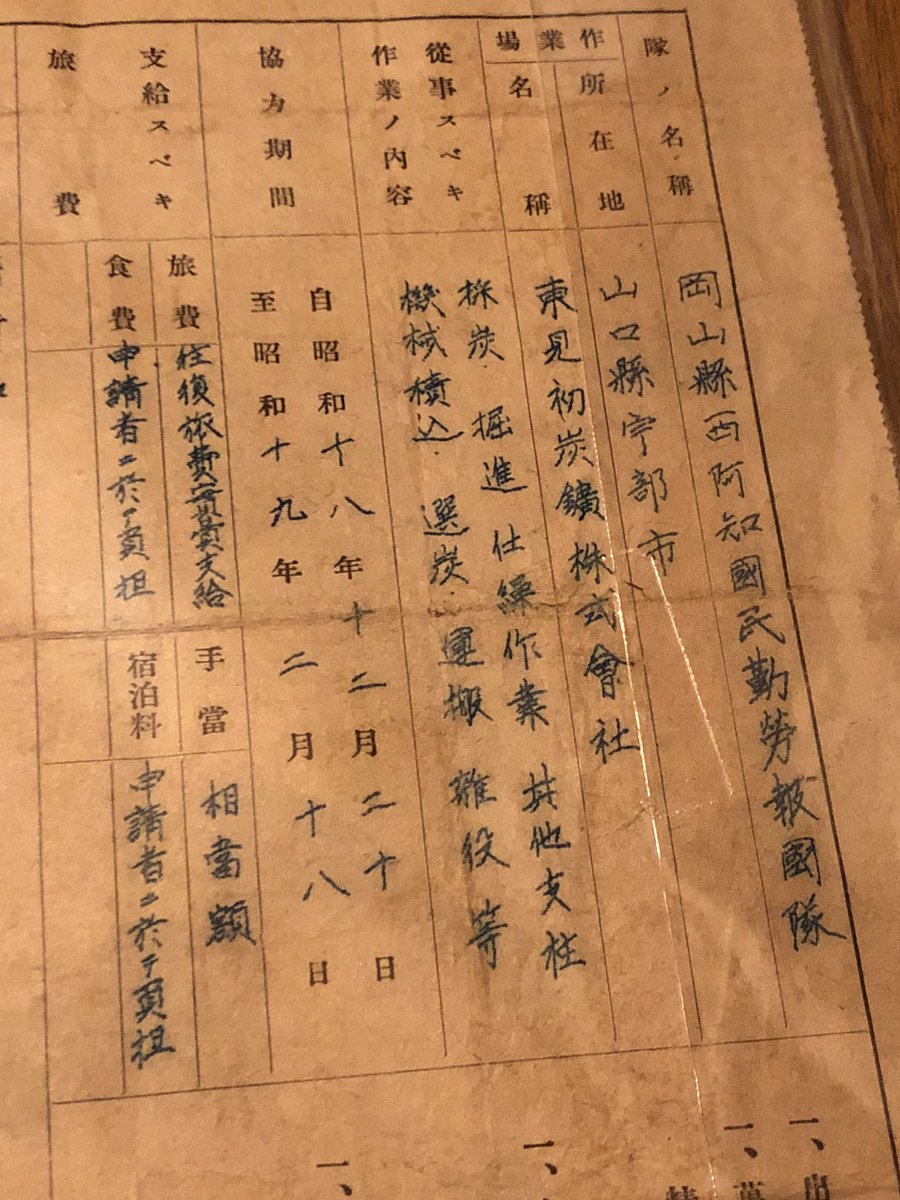 隊ノ名稱
岡山縣西阿知國民勤勞報國隊
作業場
所在地
山口縣宇部市
名稱
東見初炭鑛株式會社
從事スベキ
作業ノ内容
採炭 掘進 仕繰作業 其他支柱
機械積込 選炭 運搬 雜役 等
協力期間
自昭和十八年十二月二十日
至昭和十九年二月十八日
支給スベキ
旅費
旅費
往復旅費實費支給
手當
相當額
食費
申請者ニ於テ負担
宿泊料
申請者ニ於テ負担
一、
一、
一、
一、